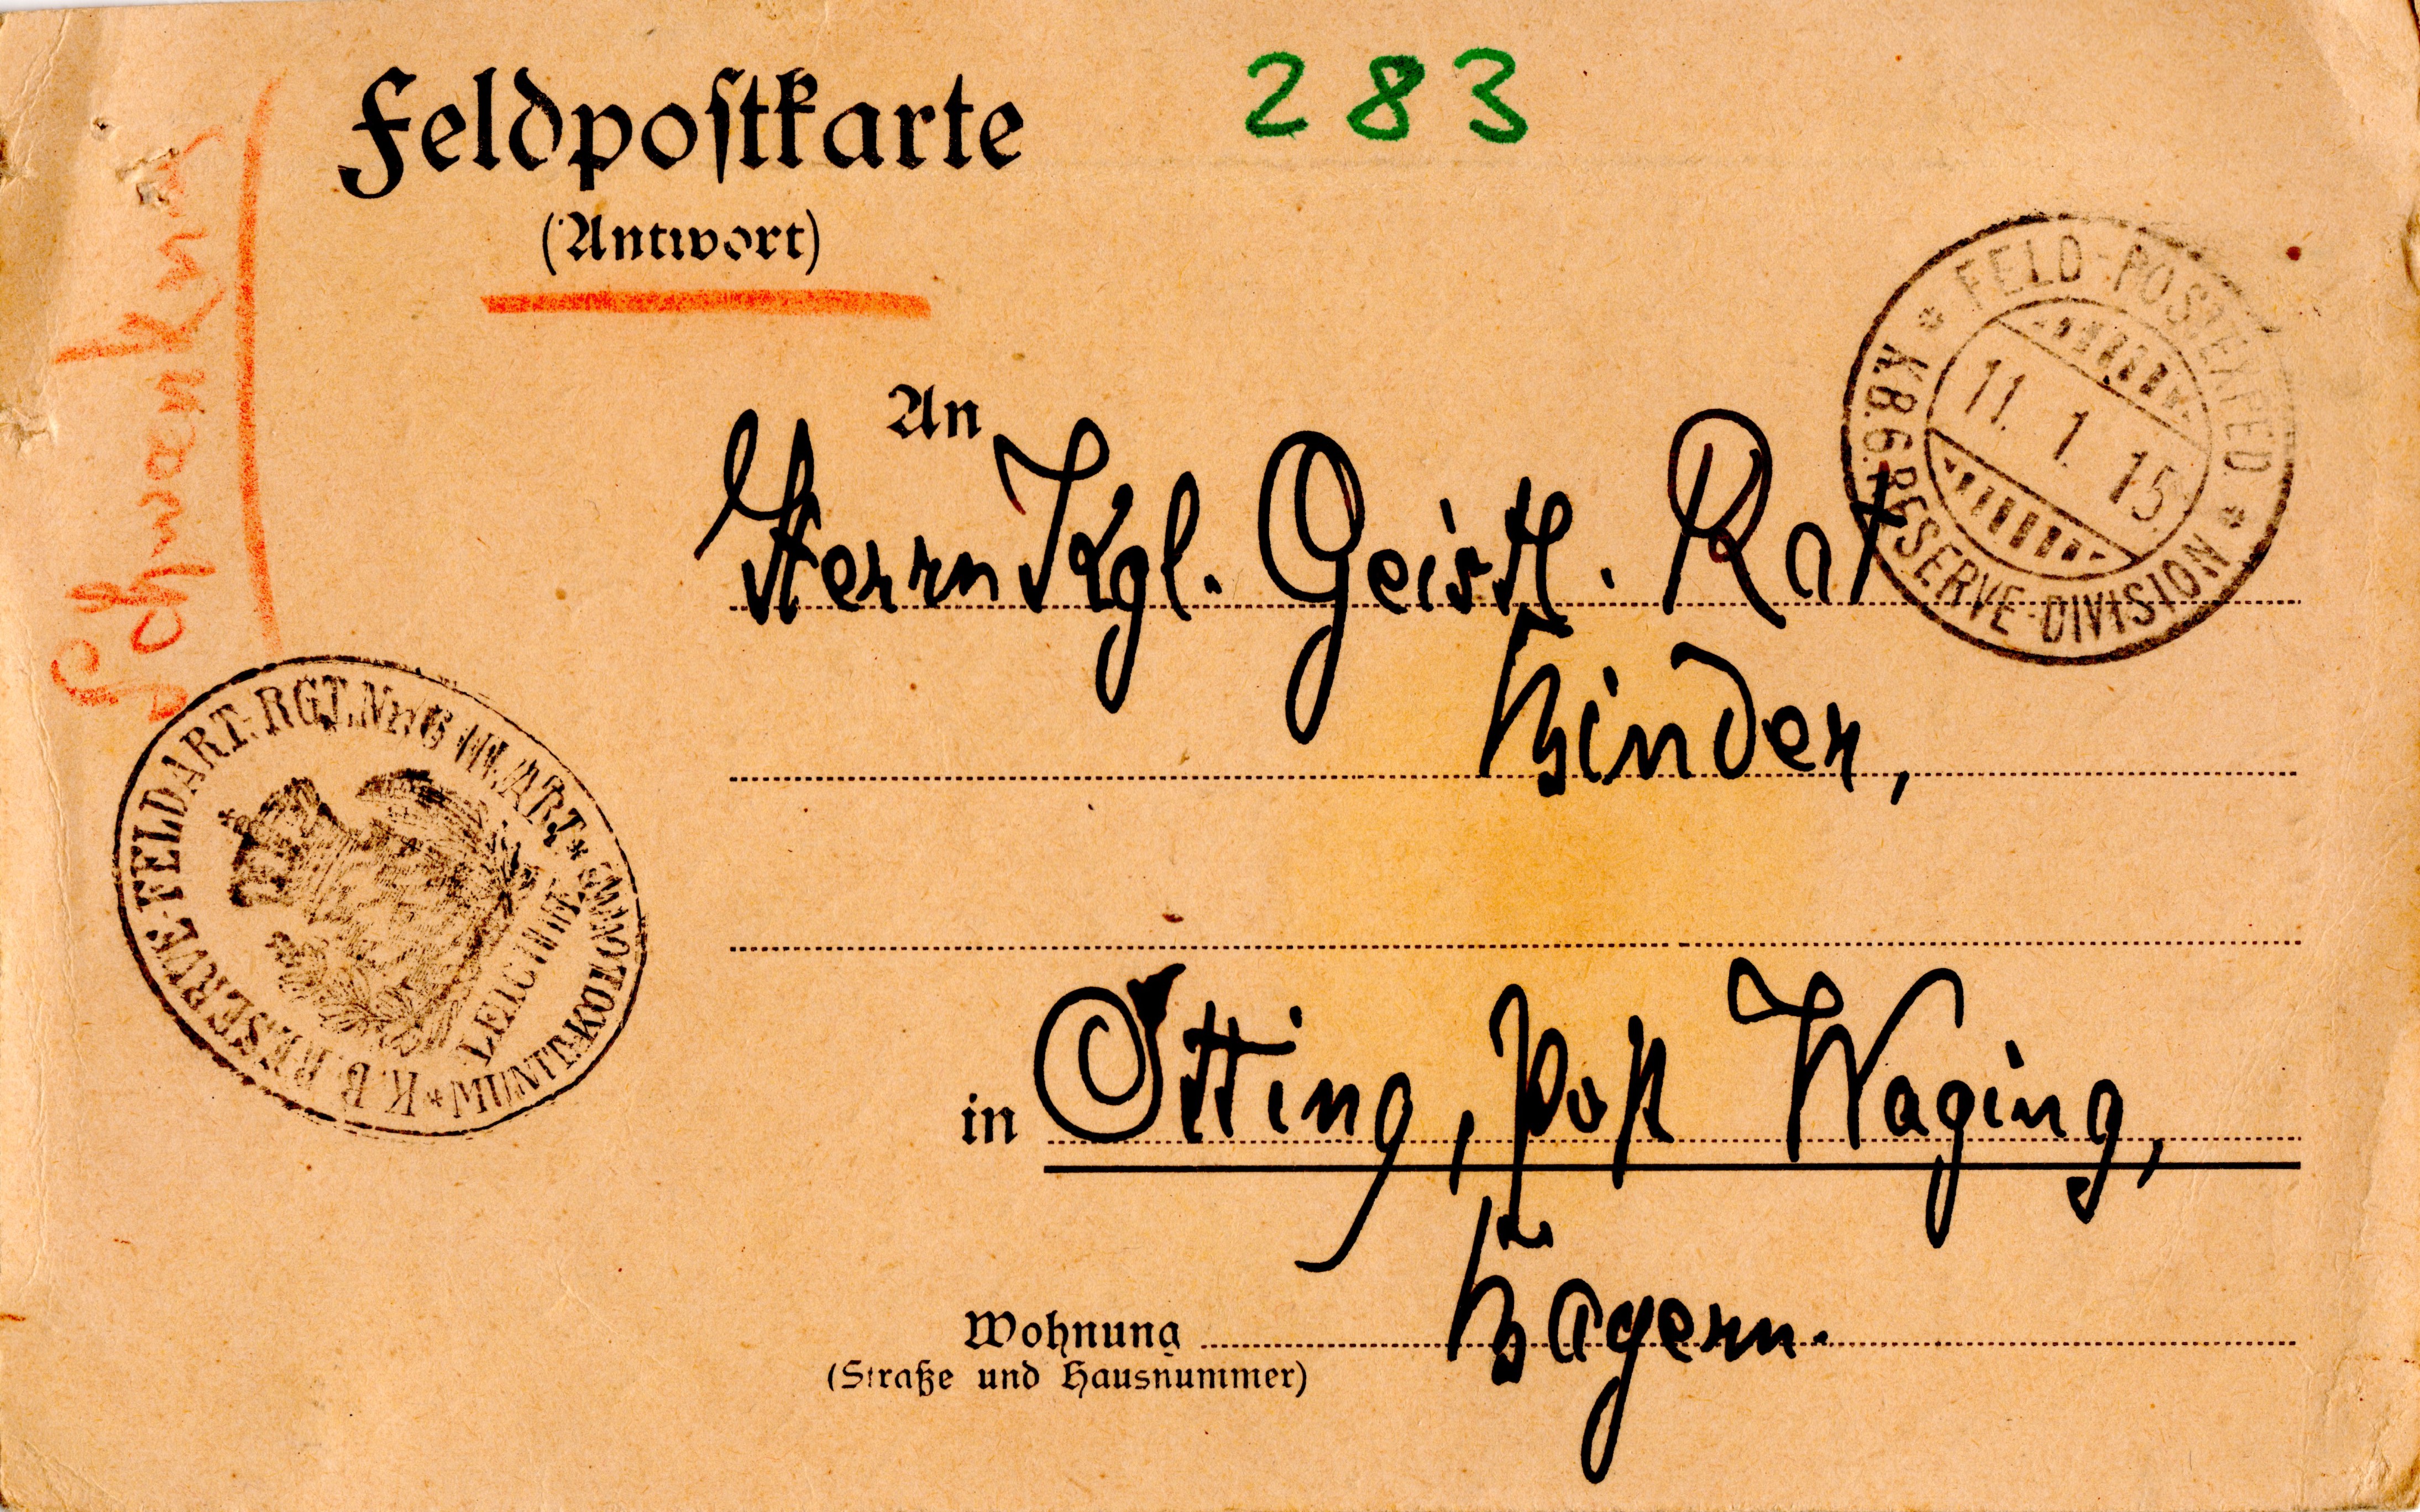 Feldpostkarte
283
(Antwort)
Schwenk
An
Herrn Kgl. Geistl. Rat
Binder,
in Otting, Post Waging,
Bayern.
Wohnung
(Straße und Hausnummer)
* FELD-POSTEXPED. *
K.B.6.RESERVE-DIVISION
11. 1. 15.
K.B. RESERVE-FELDART. RGT. Nr. 6 III. ART.
MUNIT. KOLONNE
LEICHTE